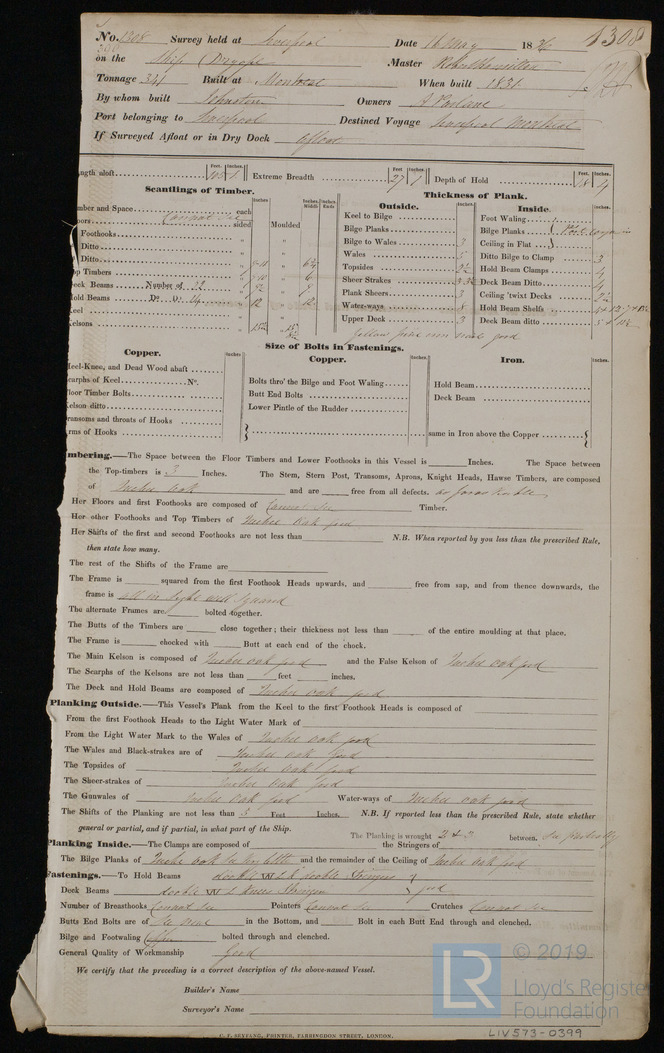 No. 1308 Survey held at Liverpool Date 16 May 1836 1308
on the Ship Dryope Master Robert Hamilton
Tonnage 341 Built at Montreal When built 1831
By whom built Johnston Owners
Port belonging to Liverpool Destined Voyage Liverpool Montreal
If Surveyed Afloat or in Dry Dock Afloat
ngth aloft Feet. Inches. 105 1 Extreme Breadth Feet. Inches. 27 1 Depth of Hold Feet. Inches. 18 4
Scantlings of Timber. Thickness of Plank.
Outside. Inside.
mber and Space each
oors Cannot see sided Moulded
Foothooks
Ditto
Ditto
op Timbers
eck Beams Number of 22
old Beams Do. Do. 14 12 12
eel
elsons
Inches Inches Middle Inches Ends
Keel to Bilge
Bilge Planks
Bilge to Wales 3
Wales 5
Topsides
Sheer Strakes
Plank Sheers 3
Water-ways
Upper Deck 3
Foot Waling
Bilge Planks
Ceiling in Flat
Ditto Bilge to Clamp 3
Hold Beam Clamps 4
Deck Beam Ditto 4
Ceiling 'twixt Decks
Hold Beam Shelfs
Deck Beam ditto
yellow pine good
Size of Bolts in Fastenings.
Copper. Inches Copper. Inches Iron. Inches.
Heel-Knee, and Dead Wood abaft
carphs of Keel No.
loor Timber Bolts
elson ditto
ransoms and throats of Hooks
rms of Hooks
Bolts thro' the Bilge and Foot Waling
Butt End Bolts
Lower Pintle of the Rudder
Hold Beam
Deck Beam
same in Iron above the Copper
mbering.—The Space between the Floor Timbers and Lower Foothooks in this Vessel is Inches. The Space between
the Top-timbers is 3 Inches. The Stem, Stern Post, Transoms, Aprons, Knight Heads, Hawse Timbers, are composed
of Quebec Oak and are free from all defects. as far as visible
Her Floors and first Foothooks are composed of Cannot see Timber.
Her other Foothooks and Top Timbers of Quebec Oak good
Her Shifts of the first and second Foothooks are not less than N.B. When reported by you less than the prescribed Rule,
then state how many.
The rest of the Shifts of the Frame are
The Frame is squared from the first Foothook Heads upwards, and free from sap, and from thence downwards, the
frame is all in sight well squared
The alternate Frames are bolted together.
The Butts of the Timbers are close together; their thickness not less than of the entire moulding at that place.
The Frame is chocked with Butt at each end of the chock.
The Main Kelson is composed of Quebec oak good and the False Kelson of Quebec oak good
The Scarphs of the Kelsons are not less than feet inches.
The Deck and Hold Beams are composed of Quebec oak good
Planking Outside.—This Vessel's Plank from the Keel to the first Foothook Heads is composed of
From the first Foothook Heads to the Light Water Mark of
From the Light Water Mark to the Wales of Quebec oak good
The Wales and Black-strakes are of Quebec oak good
The Topsides of Quebec Oak good
The Sheer-strakes of Quebec Oak good
The Gunwales of Quebec Oak good Water-ways of Quebec oak good
The Shifts of the Planking are not less than 5 Feet Inches. N.B. If reported less than the prescribed Rule, state whether
general or partial, and if partial, in what part of the Ship. The Planking is wrought 2 & 3 between.
Planking Inside.—The Clamps are composed of the Stringers of
The Bilge Planks of Quebec oak and the remainder of the Ceiling of Quebec oak good
Fastenings.—To Hold Beams double
Deck Beams double good
Number of Breasthooks Cannot see Pointers Cannot see Crutches Cannot see
Butts End Bolts are of in the Bottom, and Bolt in each Butt End through and clenched.
Bilge and Footwaling bolted through and clenched.
General Quality of Workmanship Good
We certify that the preceding is a correct description of the above-named Vessel.
Builder's Name
Surveyor's Name
C. F. SEYFANG, PRINTER, FARRINGDON STREET, LONDON.
LR © 2019
Lloyd's Register
Foundation
LIV573-0399